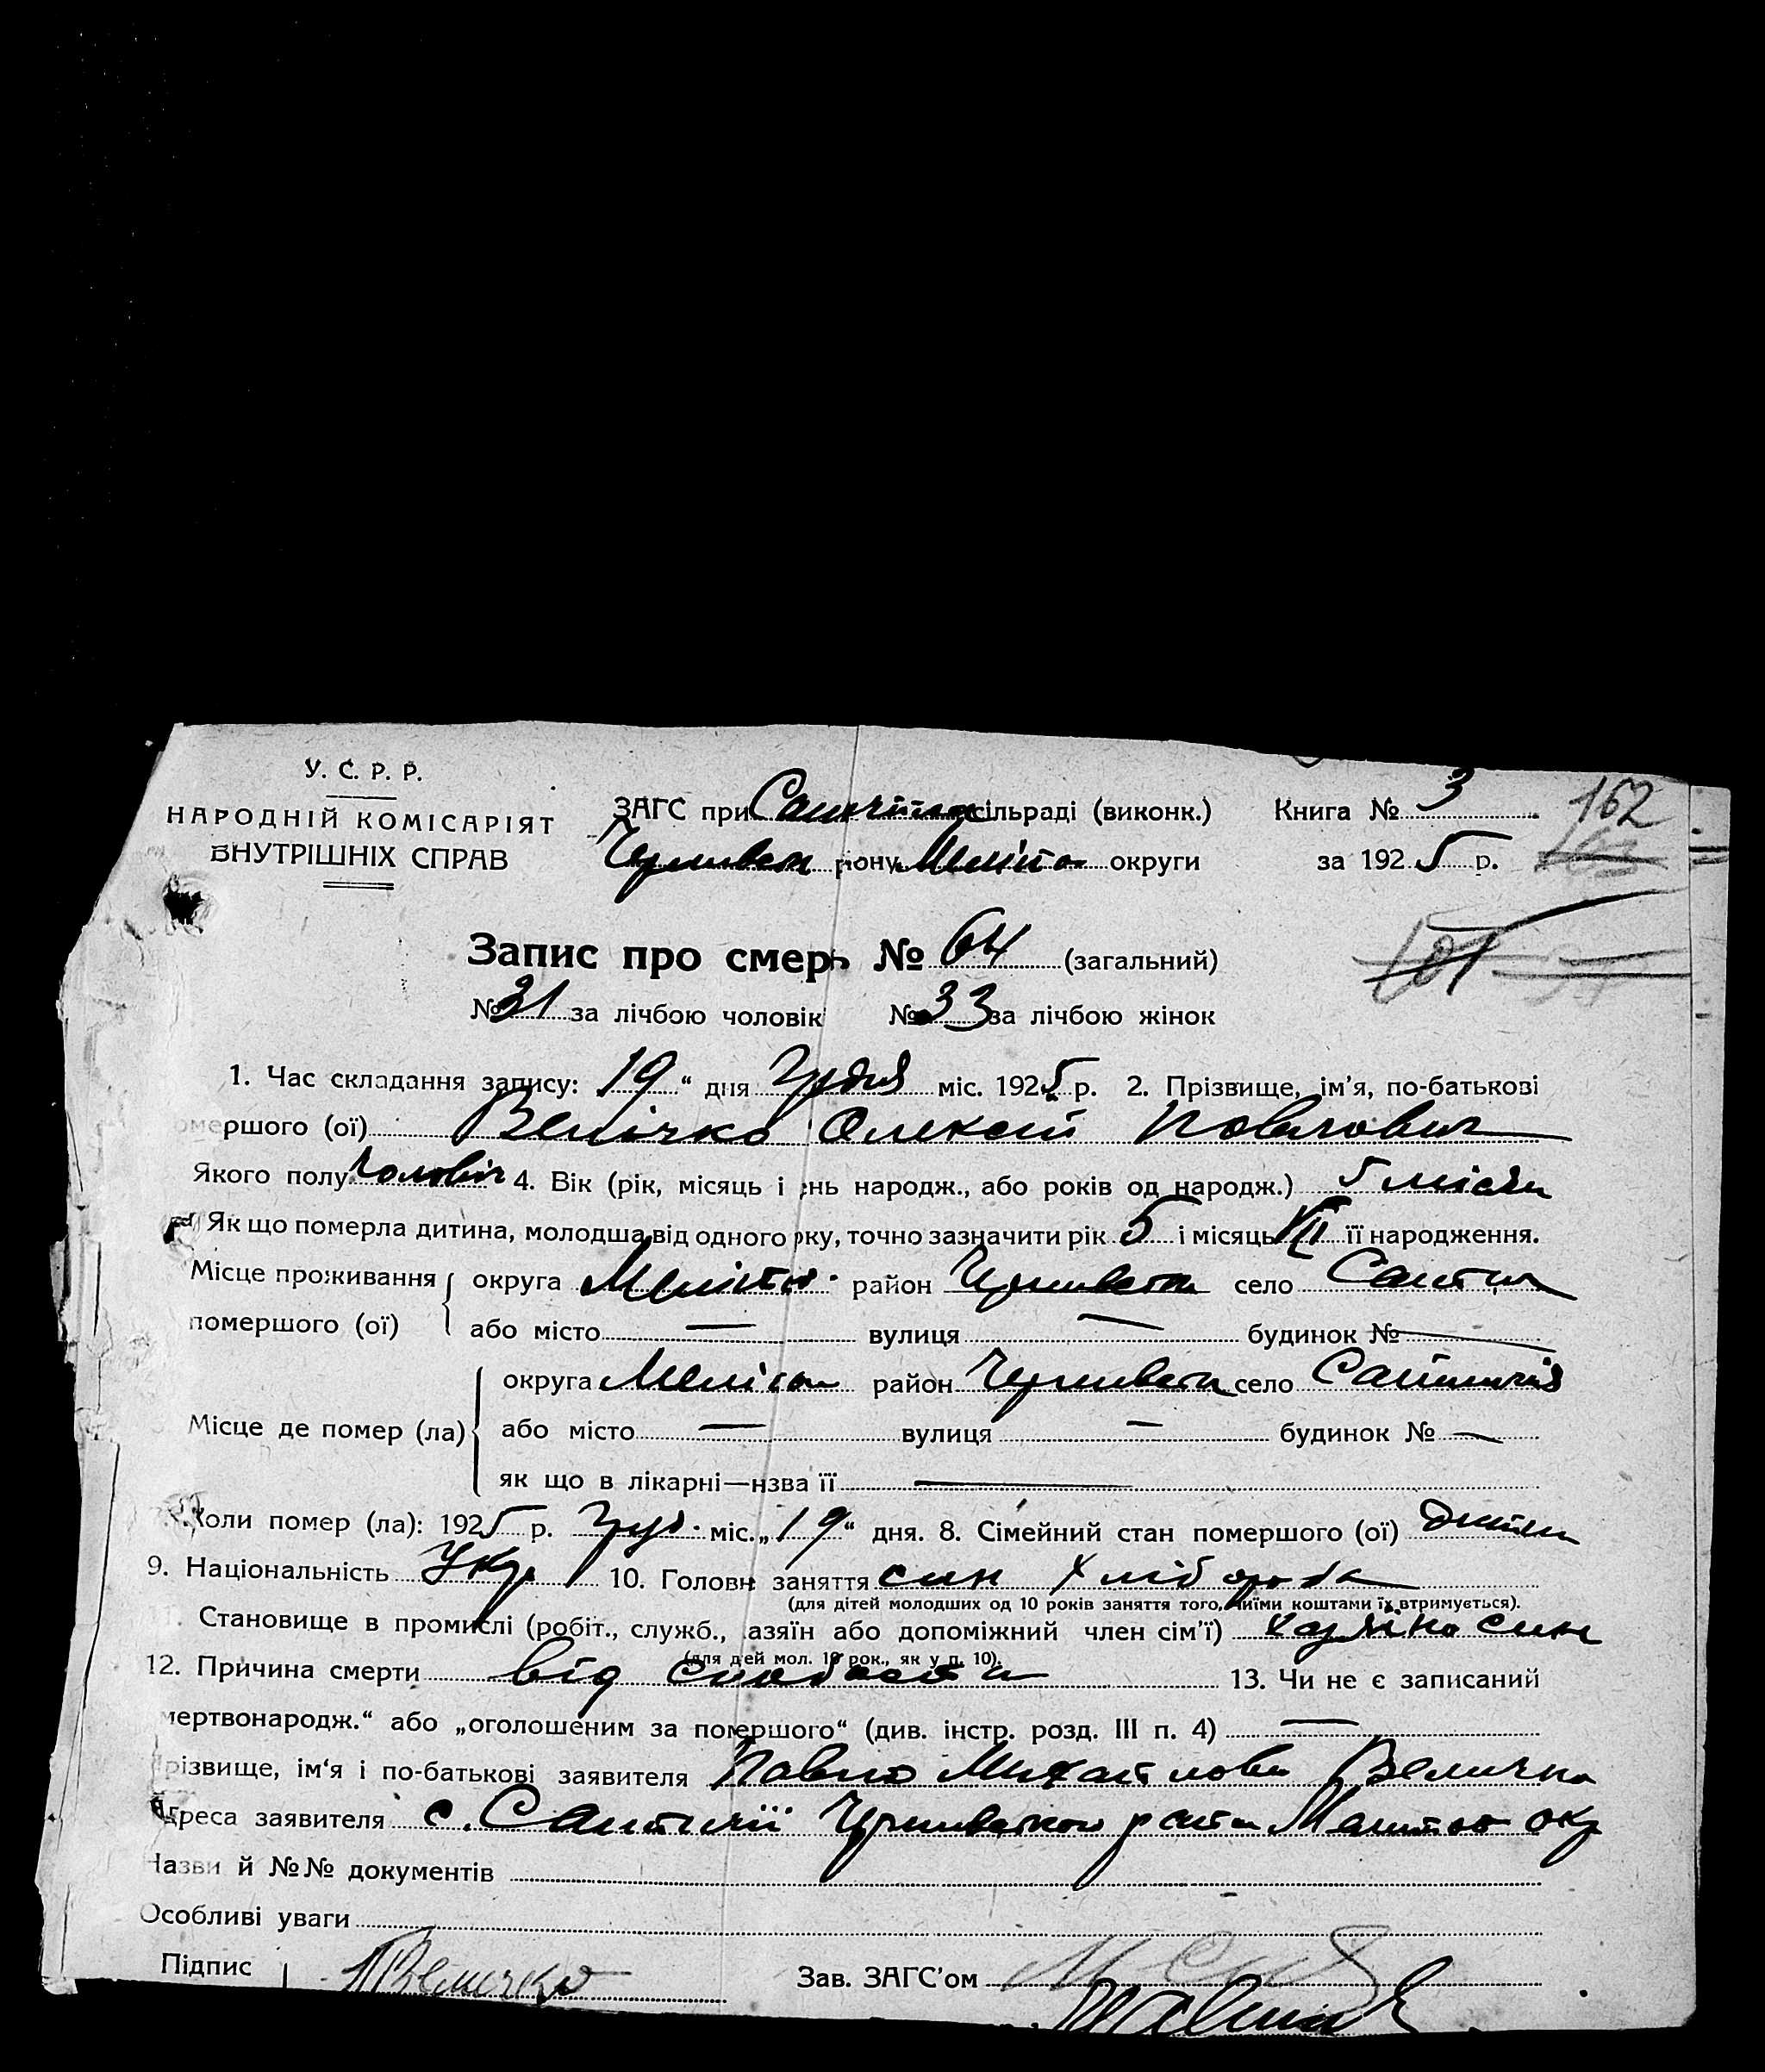 У. С. Р. Р.
НАРОДНІЙ КОМІСАРІЯТ
ВНУТРІШНІХ СПРАВ
ЗАГС при сільраді (виконк.) Книга № 3 162
ріону Меліто округи за 1925 р.
Запис про смерь № 64 (загальний)
№ 31 за лічбою чоловік № 33 за лічбою жінок
1. Час складання запису: 19 “ дня Грудня міс. 1925 р. 2. Прізвище, ім’я, по-батькові
омершого (ої) Велічко Олексій Повлович
Якого полу чоловіч 4. Вік (рік, місяць і ень народж., або років од народж.) 5 місяц
Як що померла дитина, молодша від одного рку, точно зазначити рік 5 і місяць VII її народження.
Місце проживання округа Меліто район село
помершого (ої) або місто — вулиця — будинок № —
округа Меліто район село
Місце де помер (ла) або місто — вулиця — будинок № —
як що в лікарні—нзва її —
Коли помер (ла): 1925 р. Груд. міс. „19“ дня. 8. Сімейний стан помершого (ої) дитина
9. Національність Укр 10. Головн заняття син хлібороба
(для дітей молодших од 10 років заняття того, чиїми коштами їх втримується).
Становище в промислі (робіт., служб., азяїн або допоміжний член сім’ї) хазяїна син
(для дей мол. 10 рок., як у п. 10).
12. Причина смерти від слабости 13. Чи не є записаний
мертвонародж.“ або „оголошеним за помершого“ (див. інстр. розд. III п. 4) —
різвище, ім‘я і по-батькові заявителя Павло Михайлови Величко
Адреса заявителя с. окр
Назви й №№ документів
Особливі уваги
Підпис ПВеличко Зав. ЗАГС’ом